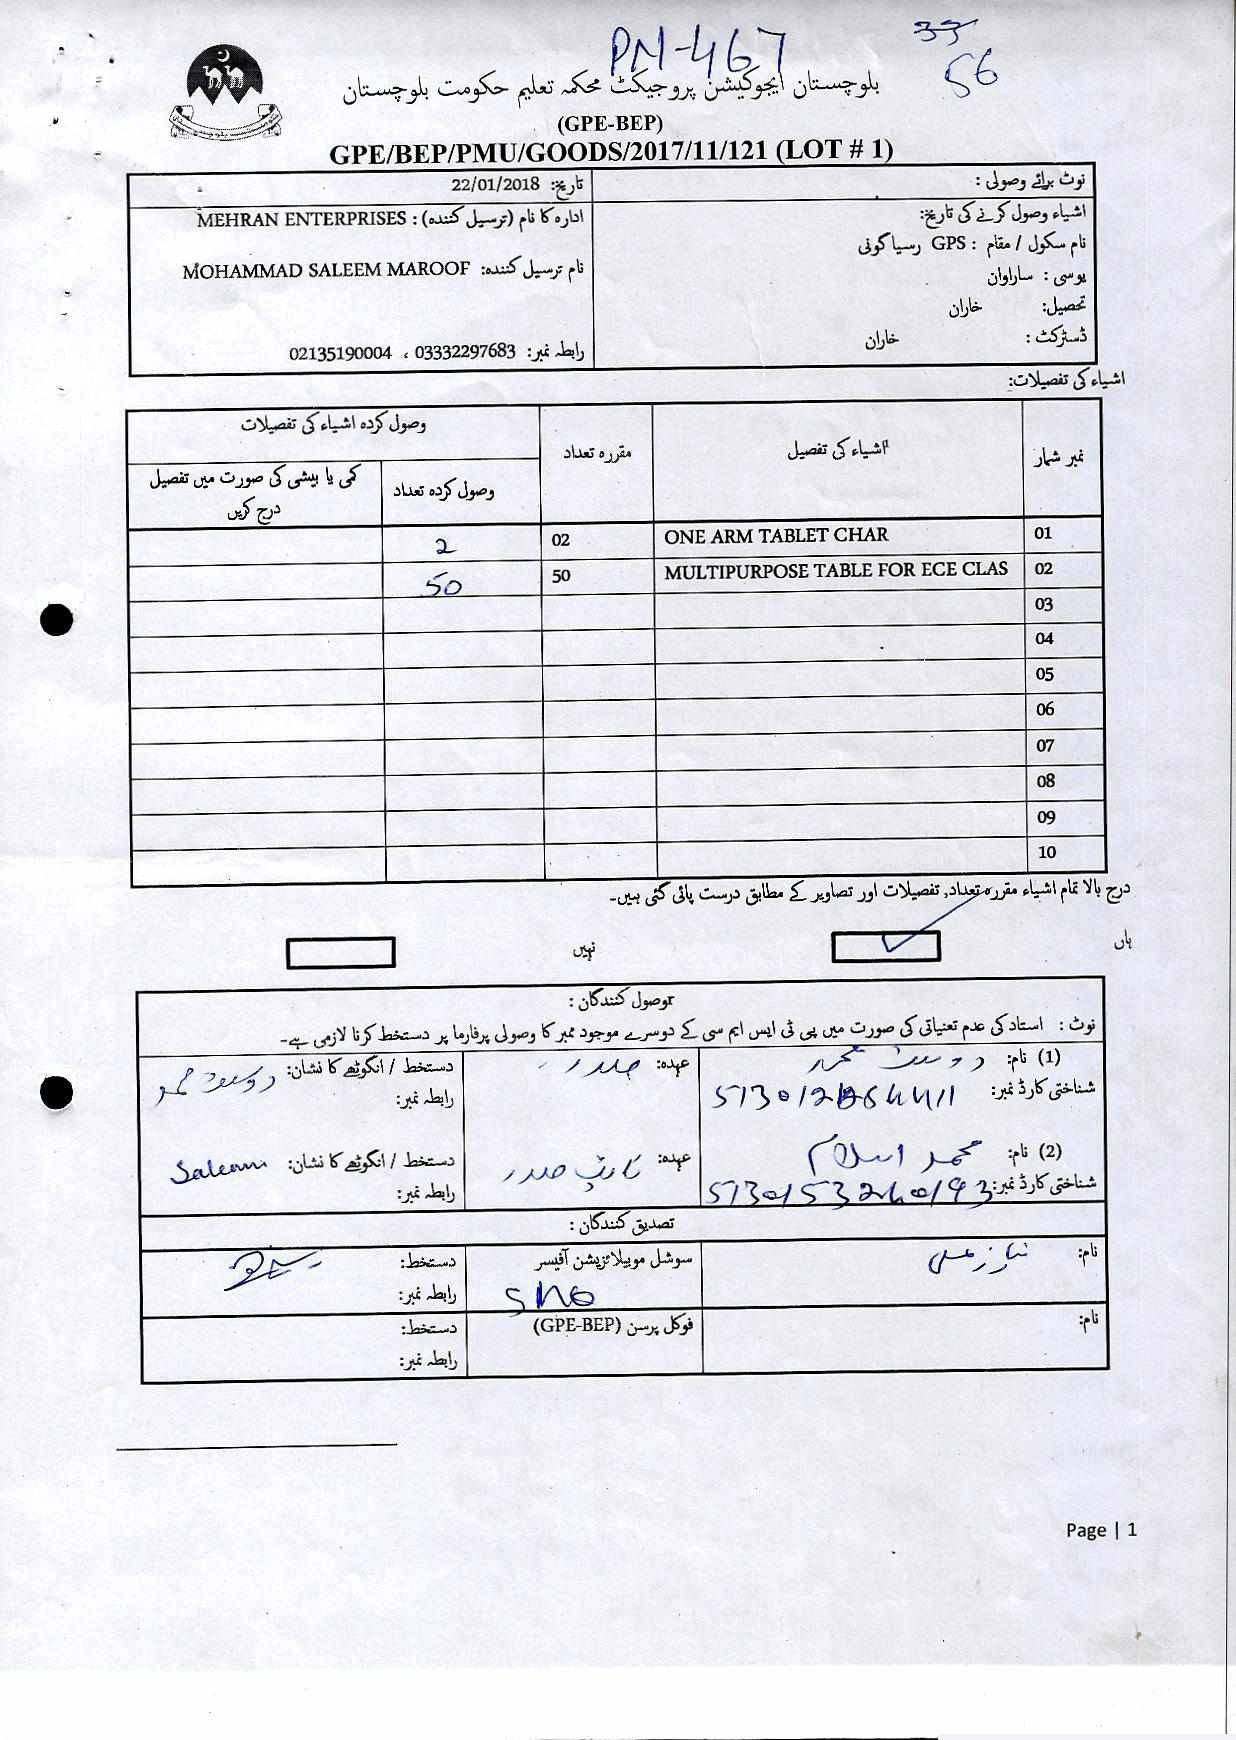 PM-467
33
56
بلوچستان ایجوکیشن پروجیکٹ محکمہ تعلیم حکومت بلوچستان
(GPE-BEP)
GPE/BEP/PMU/GOODS/2017/11/121 (LOT # 1)
نوٹ برائے وصولی :
تاریخ: 22/01/2018
اشیاء وصول کرنے کی تاریخ:
نام سکول / مقام : GPS رسیا گونی
یوسی : ساراوان
تحصیل: خاران
ڈسٹرکٹ : خاران
ادارہ کا نام (ترسیل کنندہ) : MEHRAN ENTERPRISES
نام ترسیل کنندہ: MOHAMMAD SALEEM MAROOF
رابطہ نمبر: 03332297683 ، 02135190004
اشیاء کی تفصیلات:
نمبر شمار اشیاء کی تفصیل مقررہ تعداد وصول کردہ اشیاء کی تفصیلات
وصول کردہ تعداد کمی یا بیشی کی صورت میں تفصیل درج کریں
01 ONE ARM TABLET CHAR 02 2
02 MULTIPURPOSE TABLE FOR ECE CLAS 50 50
03
04
05
06
07
08
09
10
درج بالا تمام اشیاء مقررہ تعداد, تفصیلات اور تصاویر کے مطابق درست پائی گئی ہیں۔
ہاں نہیں
وصول کنندگان :
نوٹ : استاد کی عدم تعنیاتی کی صورت میں پی ٹی ایس ایم سی کے دوسرے موجود ممبر کا وصولی پرفارما پر دستخط کرنا لازمی ہے۔
(1) نام: دوست محمد عہدہ: دستخط / انگوٹھے کا نشان: دوست محمد
شناختی کارڈ نمبر: رابطہ نمبر:
(2) نام: محمد اسلام عہدہ: نائب صدر دستخط / انگوٹھے کا نشان: Saleem
شناختی کارڈ نمبر: رابطہ نمبر:
تصدیق کنندگان :
نام: سوشل موبیلائزیشن آفیسر دستخط:
SMO رابطہ نمبر:
نام: فوکل پرسن (GPE-BEP) دستخط:
رابطہ نمبر:
Page | 1